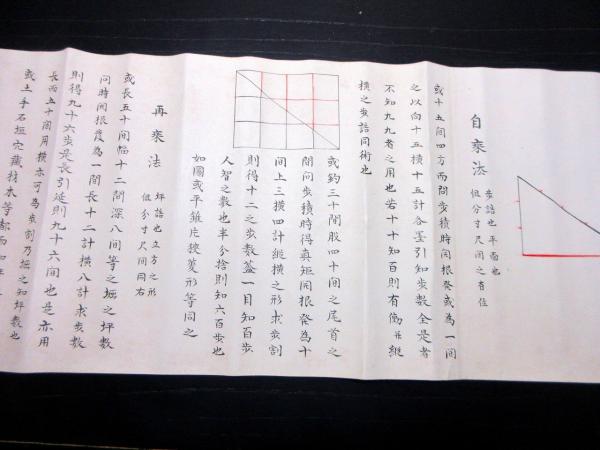 自乗法
歩詰也平面也
但分寸尺間之有位
或十五間四方而問歩積時間根癹或為一間
之以向十五横十五計合墨引知歩数全是者
不知九九者之用也若十十知百則有働并縦
横之歩詰同術也
或鈎三十間股四十間之尾首之
間問歩積時得真矩間根発為十
間上三横四計縦横之形求歩割
則得十二之歩数蓋一目知百歩
人智之数也半分捨則知六百歩也
如図或平錐片狭菱形等同之
再乗法
坪詰也立方之形
但分寸尺間同右
或長五十間幅十二間深八間等之堀之坪数
問時間根度為一間長十二計横八計求歩数
則得九十六歩是長引延則九十六間也是亦用
長而五十間用横亦可為歩割乃堀之知坪数也
或土手石垣穴蔵材木等都而如